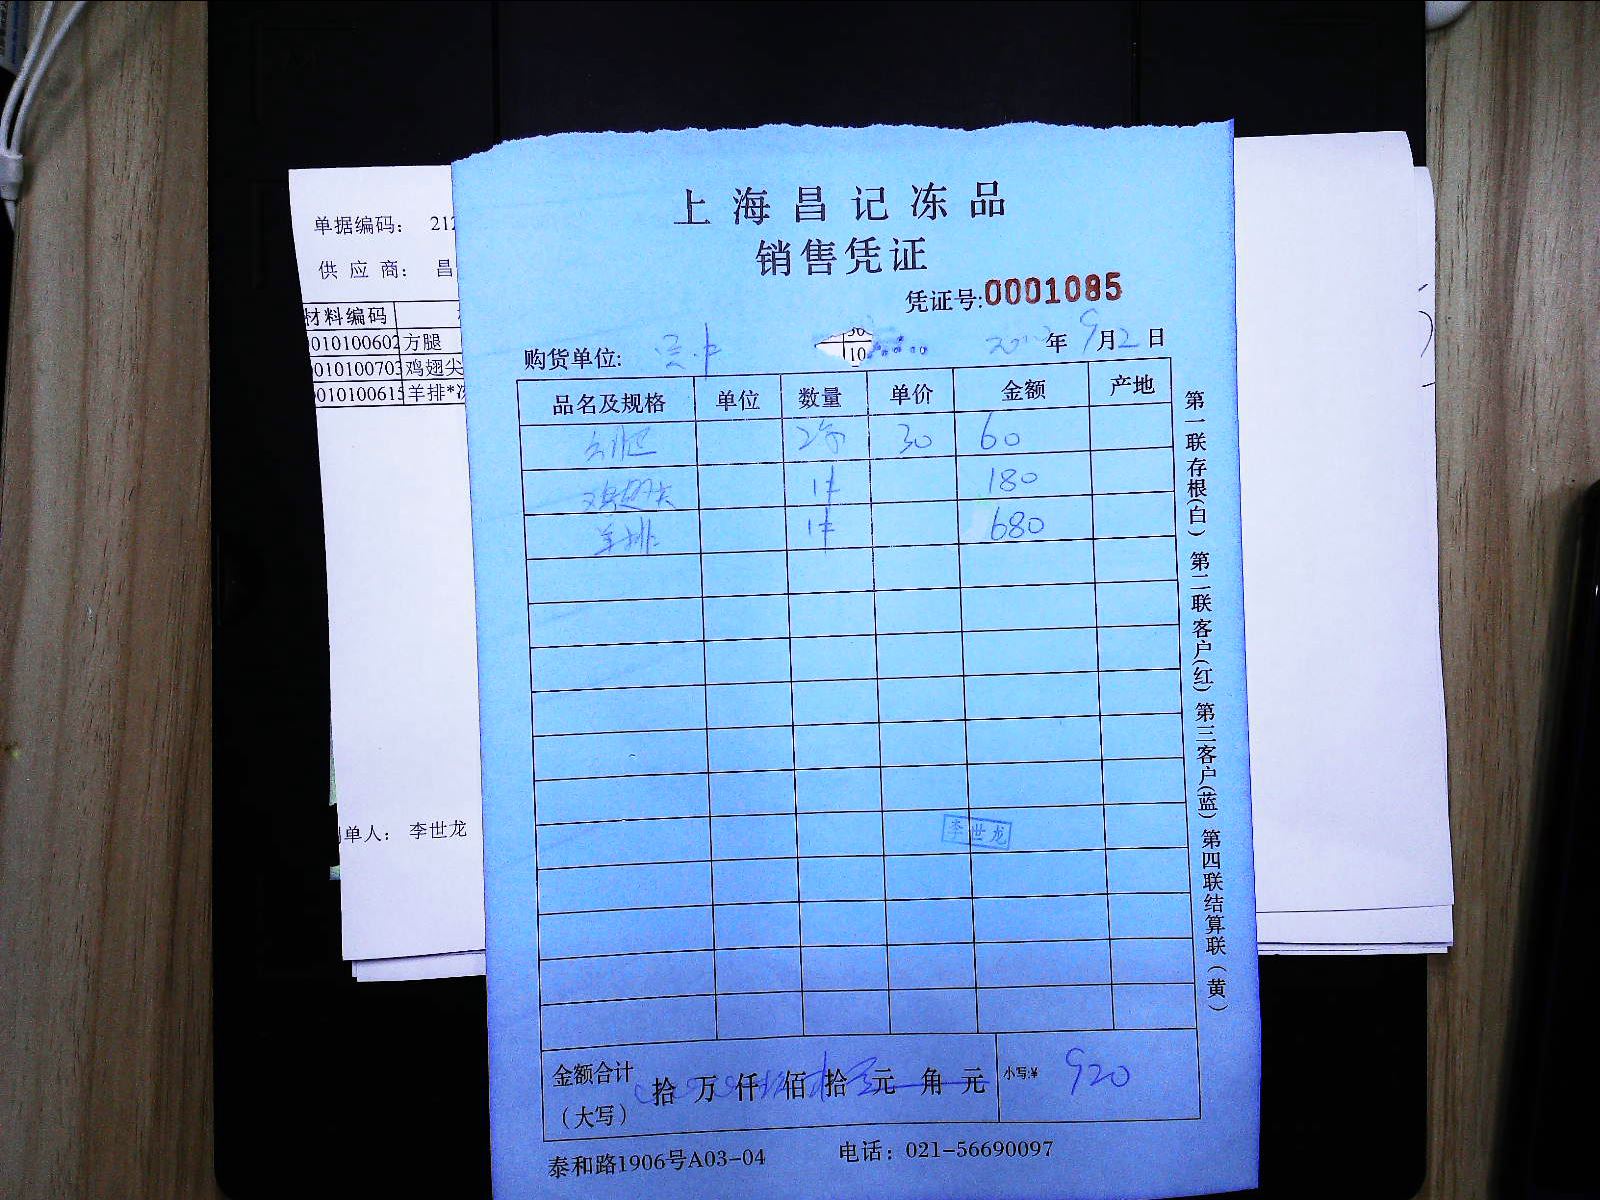 上海昌记冻品
销售凭证
凭证号:0001085
单据编码： 212
供应商： 昌
购货单位:
年9月2日
材料编码
010100602 方腿
010100703 鸡翅尖
010100615 羊排*
10
品名及规格 单位 数量 单价 金额 产地
方腿 2 30 60
鸡翅尖 1件 180
羊排 1件 680
第一联存根(白) 第二联客户(红) 第三客户(蓝) 第四联结算联(黄)
李世龙
单人： 李世龙
金额合计(大写) 拾 万 仟 佰 拾 元 角 元 小写:¥ 920
泰和路1906号A03-04 电话：021-56690097